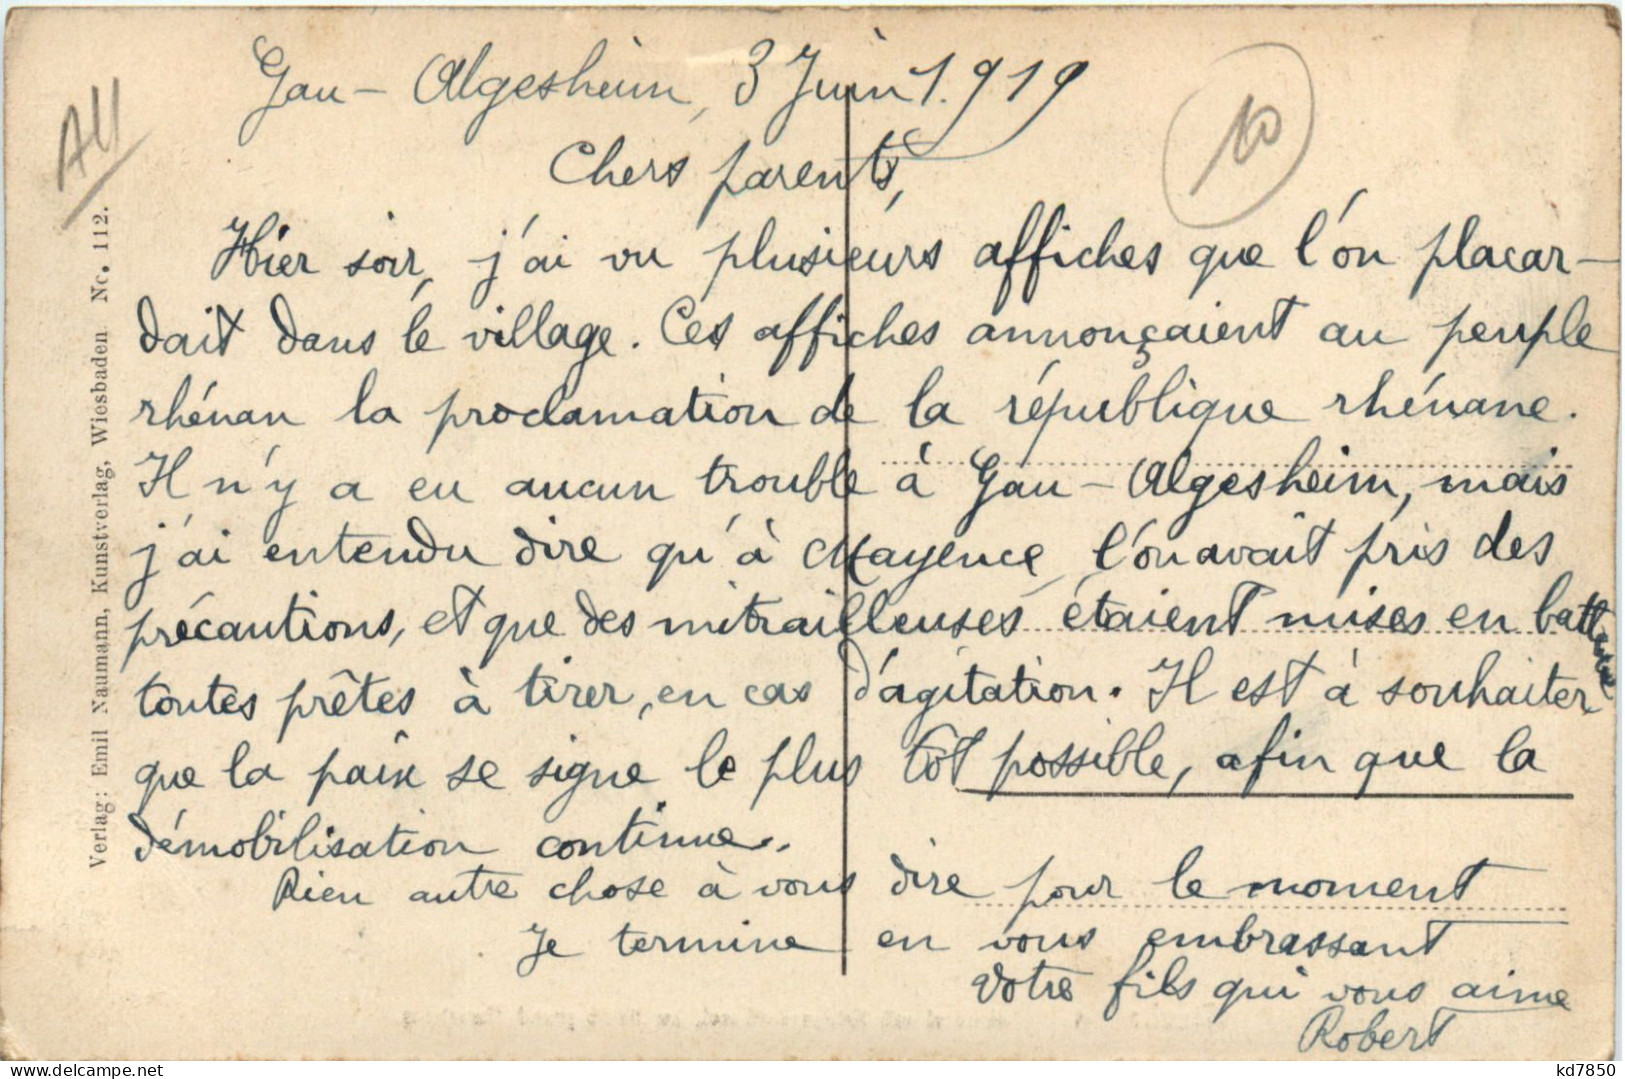 Gau-Algesheim, 3 Juin 1.919
All
10
Chers parents,
Hier soir, j'ai vu plusieurs affiches que l'on placar-
dait dans le village. Ces affiches annonçaient au peuple
rhénan la proclamation de la république rhénane.
Il n'y a eu aucun trouble à Gau-Algesheim, mais
j'ai entendu dire qu'à Mayence, l'on avait pris des
précautions, et que des mitrailleuses étaient mises en batterie
toutes prêtes à tirer, en cas d'agitation. Il est à souhaiter
que la paix se signe le plus tôt possible, afin que la
démobilisation continue.
Rien autre chose à vous dire pour le moment
Je termine en vous embrassant
Votre fils qui vous aime
Robert
Verlag: Emil Naumann, Kunstverlag, Wiesbaden Nc. 112.
kd7850